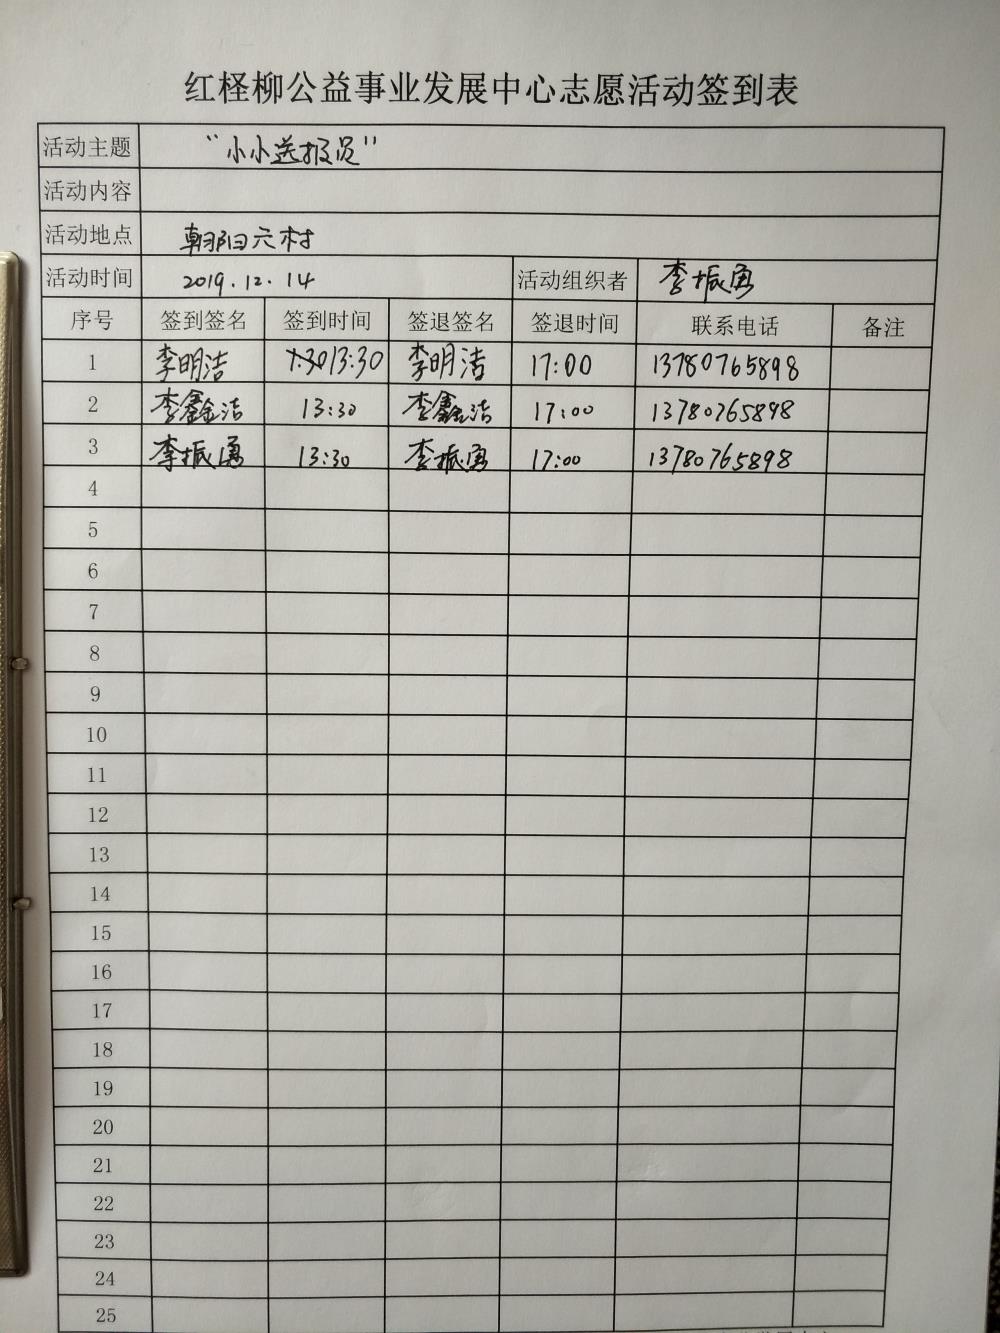 红柽柳公益事业发展中心志愿活动签到表
活动主题 “小小送报员”
活动内容
活动地点 朝阳六村
活动时间 2019.12.14 活动组织者 李振勇
序号 签到签名 签到时间 签退签名 签退时间 联系电话 备注
1 李明洁 13:30 李明洁 17:00 13780765898
2 李鑫洁 13:30 李鑫洁 17:00 13780765898
3 李振勇 13:30 李振勇 17:00 13780765898
4
5
6
7
8
9
10
11
12
13
14
15
16
17
18
19
20
21
22
23
24
25